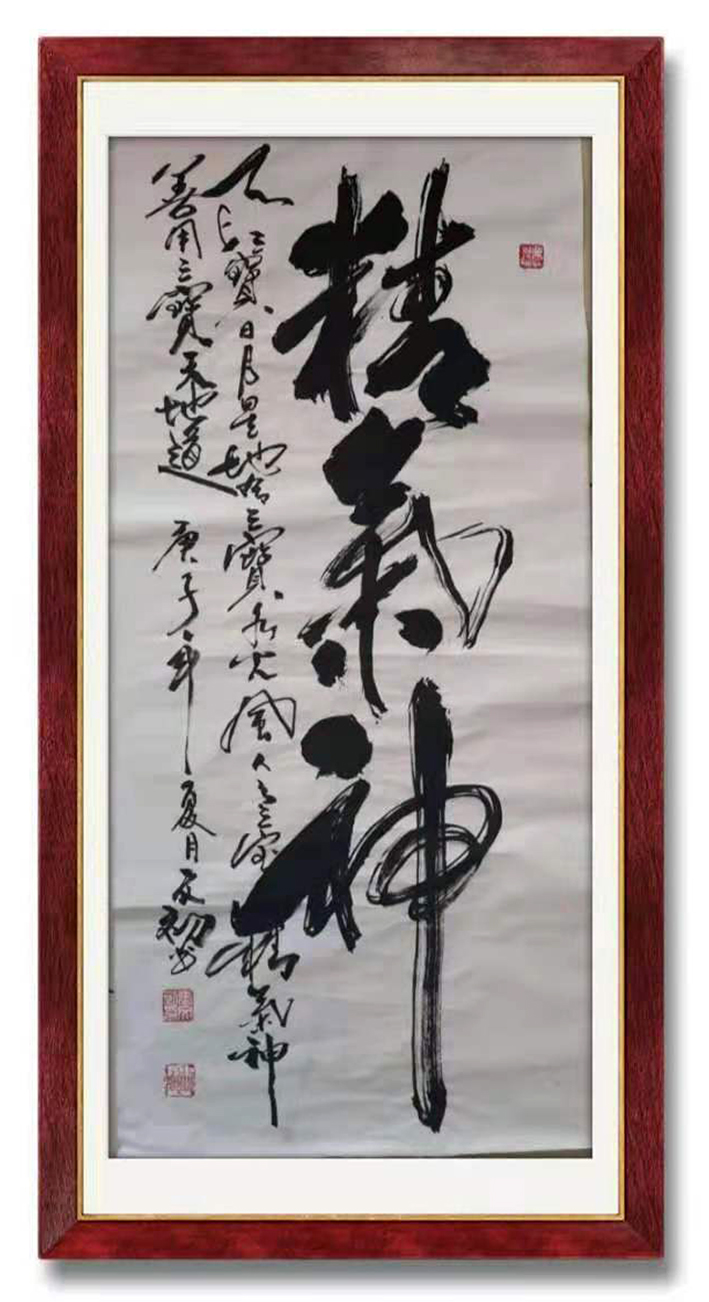 精氣神
天三寶日月星地三寶水火風人三寶精氣神
善用三寶天地道 庚子年夏月